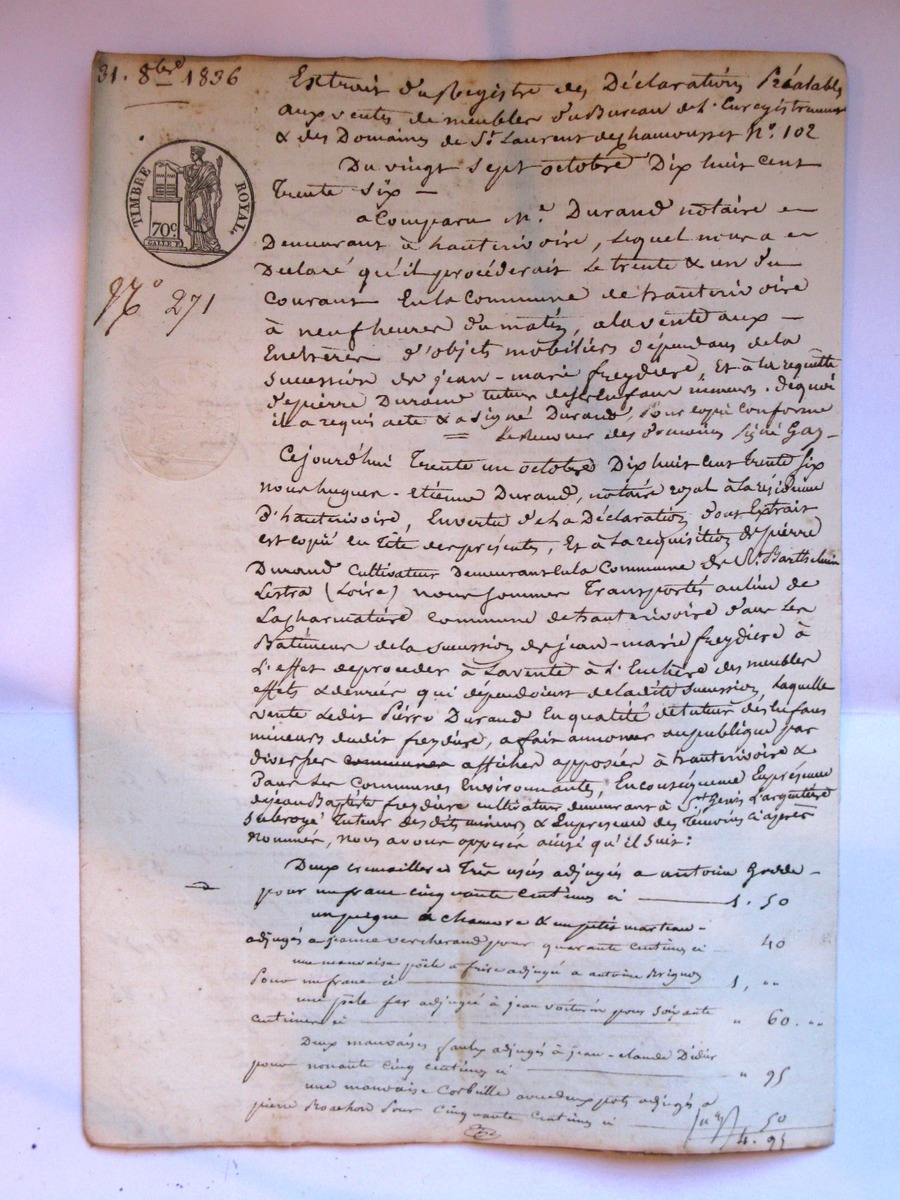 31. 8bre 1836
Extrait du Registre des Déclarations Préalables
aux ventes de meubles du Bureau de l'Enregistrement
& des Domaines de St Laurent de Chamousset No. 102
TIMBRE ROYAL
70c.
N.o 271
Du vingt sept octobre Dix huit cent
Trente six —
a Comparu Me. Durand notaire en
Demeurant à hauterivoire, lequel nous a en
Déclaré qu'il procéderait Le trente & un du
Courant En la Commune de hauterivoire
à neuf heures du matin, a la vente aux —
Enchères d'objets mobiliers dépendans de la
succession de jean-marie freydière, Et à la requête
de pierre Durand tuteur des Enfans mineurs. de quoi
il a requis acte & a signé Durand, Pour copie conforme
Le Receveur des Domaines signé Gay-
Cejourd'hui Trente un octobre Dix huit Cent trente six
nous hugues-étienne Durand, notaire royal à la résidence
d'hauterivoire, En vertu de la Déclaration dont Extrait
est copié en Tête des présentes, Et à la requisition de pierre
Durand Cultivateur Demeurant En la Commune de St. Barthelmi
Lestra (Loire) nous sommes Transportés au lieu de
La charmatière Commune de hauterivoire dans Les
Bâtimens de la succession de jean-marie freydière à
L'effet de proceder à La vente à l'Enchère des meubles
effets & denrées qui dépendoient de la dite succession, Laquelle
vente Ledit Pierre Durand En qualité de tuteur des Enfans
mineurs dudit freydière, a fait annoncer au publique par
diverses affiches apposées à hauterivoire &
Dans Les Communes Environnantes, En conséquence En présence
de jean Baptiste freydière cultivateur demeurant à St Genis L'argentière
subrogé Tuteur des dits mineurs & En présence des Temoins ci après
nommés, nous avons opperé ainsi qu'il suit:
Deux cremaillères Très usées adjugés a antoine —
pour un franc cinquante Centimes ci — 1. 50
un peigne à chanvre & un petit marteau-
adjugés a jeanne vercherand pour quarante centimes ci — 40
une mauvaise pôele a frire adjugée a antoine
Pour un franc ci — 1, ,,
une pôele fer adjugée à jean pour soixante
centimes ci — " 60. ,,
Deux mauvaises faulx adjugés à jean-claude Didier
pour nonante cinq centimes ci — " 95
une mauvaise Corbeille avec deux pots adjugés a
pierre Rocher Pour Cinquante Centimes ci — 50
4. 95